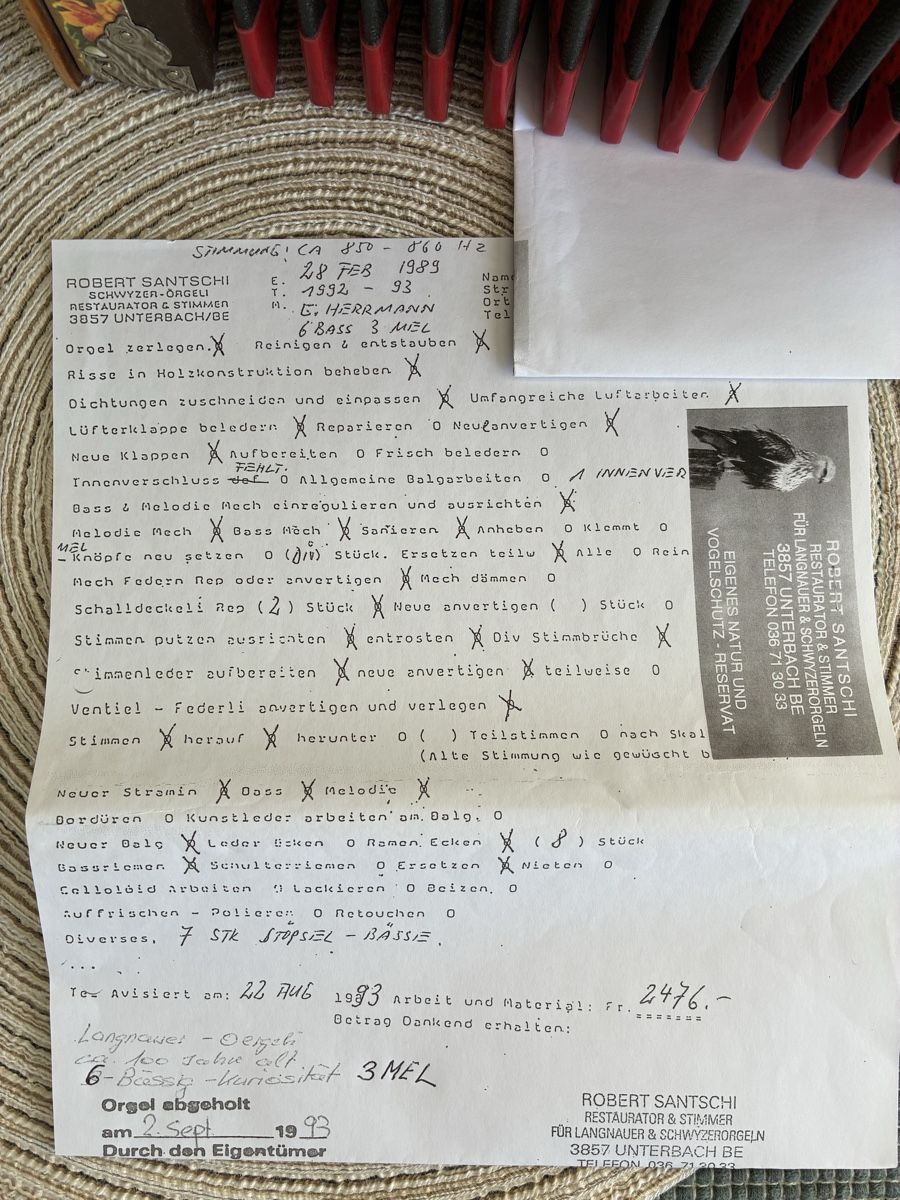 STIMMUNG! CA 850 - 860 Hz
ROBERT SANTSCHI
SCHWYZER-ÖRGELI
RESTAURATOR & STIMMEN
3857 UNTERBACH/BE
E. 28 FEB 1989
T. 1992 - 93
M. E. HERRMANN
6 BASS 3 MEL
Name
Str
Ort
Tel
Orgel zerlegen. X Reinigen & entstauben X
Risse in Holzkonstruktion beheben X
Dichtungen zuschneiden und einpassen X Umfangreiche Luftarbeiten X
Lüfterklappe beledern X Reparieren O Neuanvertigen X
Neue Klappen X Aufbereiten O Frisch beledern O
FEHLT.
Innenverschluss def O Allgemeine Balgarbeiten O 1 INNENVER
Bass & Melodie Mech einregulieren und ausrichten X
Melodie Mech X Bass Mech X Sanieren X Anheben O Klemmt O
MEL
-Knöpfe neu setzen O (DIV) Stück. Ersetzen teilw X Alle O Rein
Mech Federn Rep oder anvertigen X Mech dämmen O
Schalldeckeli Rep (2) Stück X Neue anvertigen ( ) Stück O
Stimmen putzen ausrichten X entrosten X Div Stimmbrüche X
Stimmenleder aufbereiten X neue anvertigen X teilweise O
Ventiel - Federli anvertigen und verlegen X
Stimmen X herauf X herunter O ( ) Teilstimmen O nach Skal
(Alte Stimmung wie gewüscht b
Neuer Stramin X Bass X Melodie X
Bordüren O Kunstleder arbeiten am Balg. O
Neuer Balg X Leder Ecken O Ramen Ecken X (8) Stück
Bassriemen X Schulterriemen O Ersetzen X Nieten O
Celloloid Arbeiten O Lackieren O Beizen. O
Auffrischen - Polieren O Retouchen O
Diverses. 7 STK STÖPSEL - BÄSSIE.
...
Avisiert am: 22 AUG 1993 Arbeit und Material: Fr. 2476.-
Betrag Dankend erhalten:
Langnauer - Oergeli
ca. 100 Jahre alt
6-Bässig - Kuriosität 3 MEL
Orgel abgeholt
am 2. Sept 1993
Durch den Eigentümer
ROBERT SANTSCHI
RESTAURATOR & STIMMER
FÜR LANGNAUER & SCHWYZERORGELN
3857 UNTERBACH BE
TELEFON 036 71 30 33
ROBERT SANTSCHI
RESTAURATOR & STIMMER
FÜR LANGNAUER & SCHWYZERORGELN
3857 UNTERBACH BE
TELEFON 036 71 30 33
EIGENES NATUR UND
VOGELSCHUTZ - RESERVAT